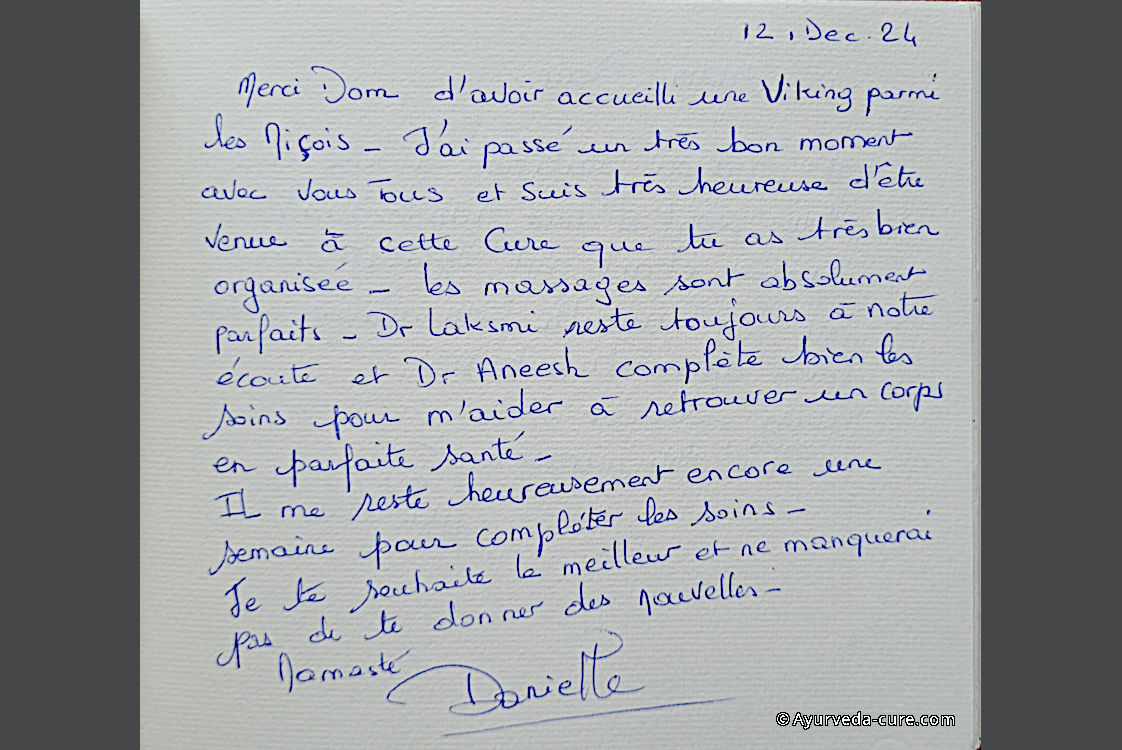 12, Dec. 24
Merci Dom d'avoir accueilli une Viking parmi
les Niçois – J'ai passé un très bon moment
avec vous Tous et suis très heureuse d'être
venue à cette Cure que tu as très bien
organisée – les massages sont absolument
parfaits – Dr Laksmi reste toujours à notre
écoute et Dr Aneesh complète bien les
soins pour m'aider à retrouver un corps
en parfaite santé –
Il me reste heureusement encore une
semaine pour compléter les soins –
Je te souhaite le meilleur et ne manquerai
pas de te donner des nouvelles –
Namasté
Danielle
©Ayurveda-cure.com